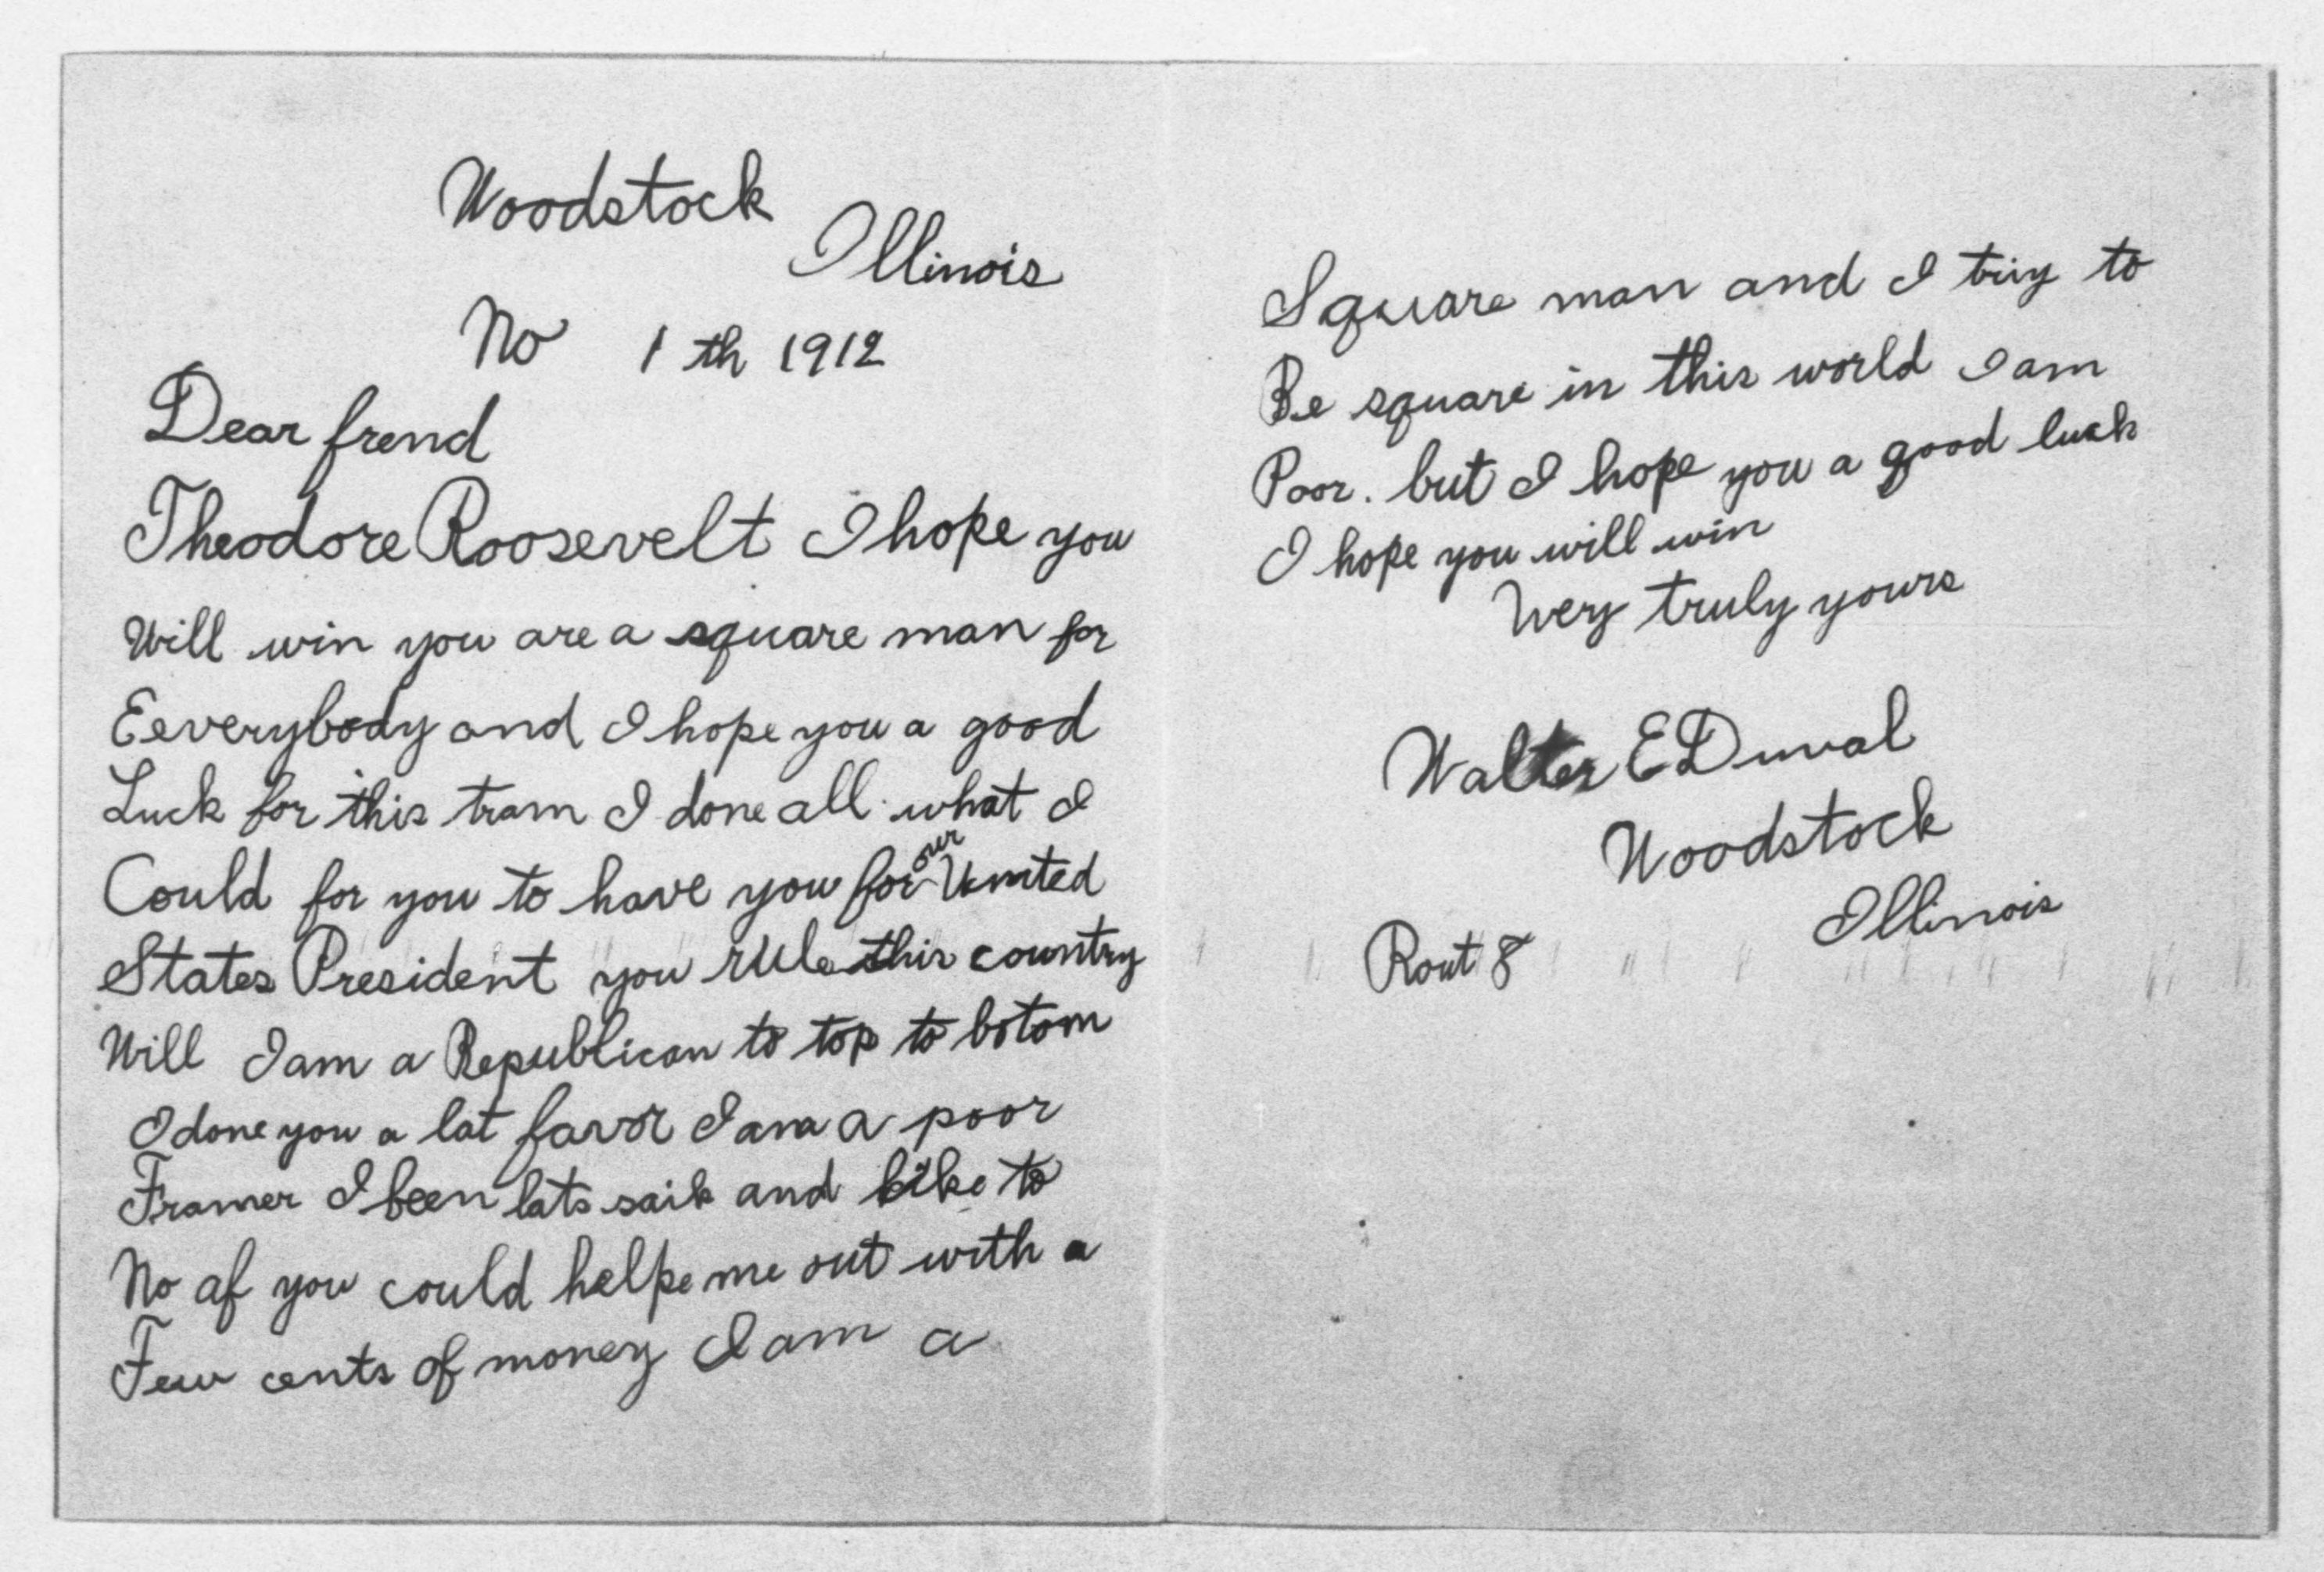 Woodstock
Illinois
No 1 th 1912
Dear frend
Theodore Roosevelt I hope you
Will win you are a square man for
Eeverybody and I hope you a good
Luck for this tram I done all what I
Could for you to have you for over Uenited
States President you rule this country
Will I am a Republican to top to botom
I done you a lat favor I am a poor
Framer I been lats saik and like to
No af you could helpe me out with a
Few cents of money I am a
Square man and I triy to
Be square in this world I am
Poor. but I hope you a good luck
I hope you will win
Wery truly yours
Walter E Duval
Woodstock
Illinois
Rout 8